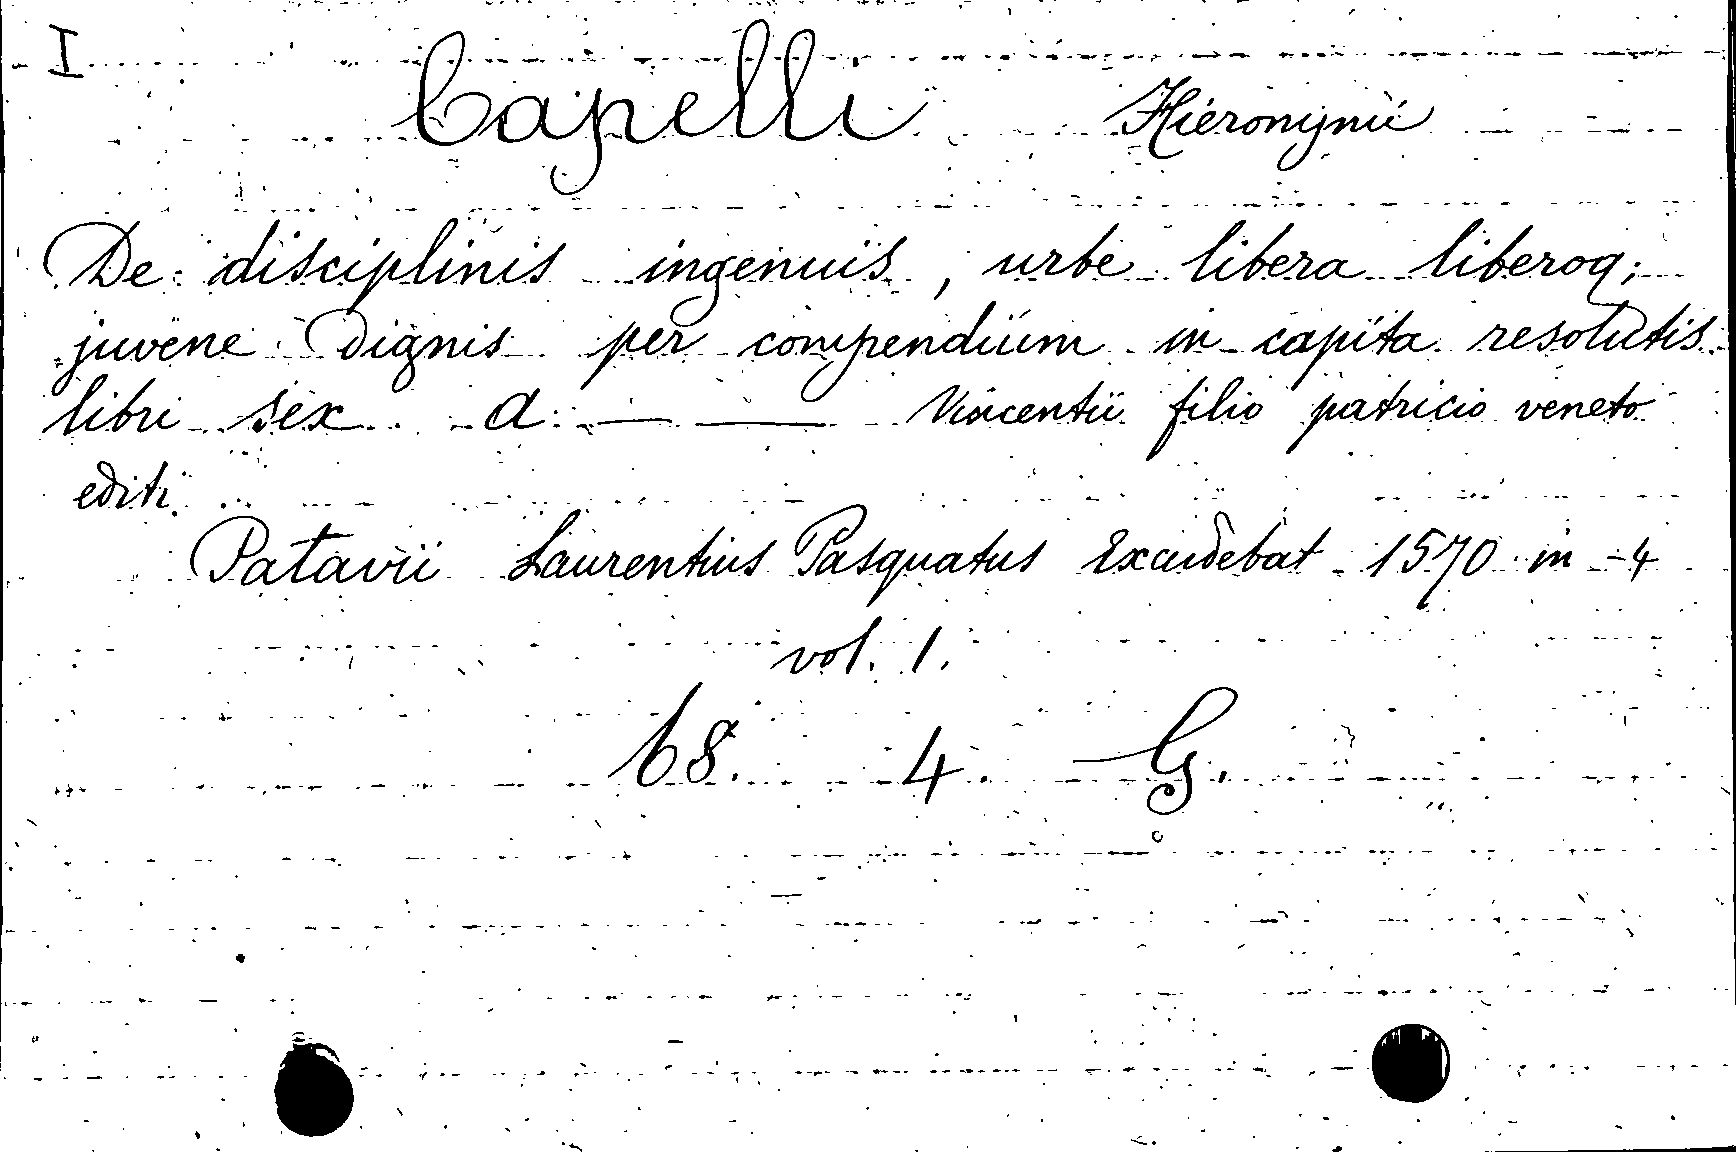 I
Capelli Hieronymii
De disciplinis ingenuis, urbe libera liberoq;
juvene dignis per compendium in capita resolutis
libri sex a — — Vincentii filio patricio veneto
editi.
Patavii Laurentius Pasquatus Excudebat 1570 in -4
vol. 1.
68. 4. G.